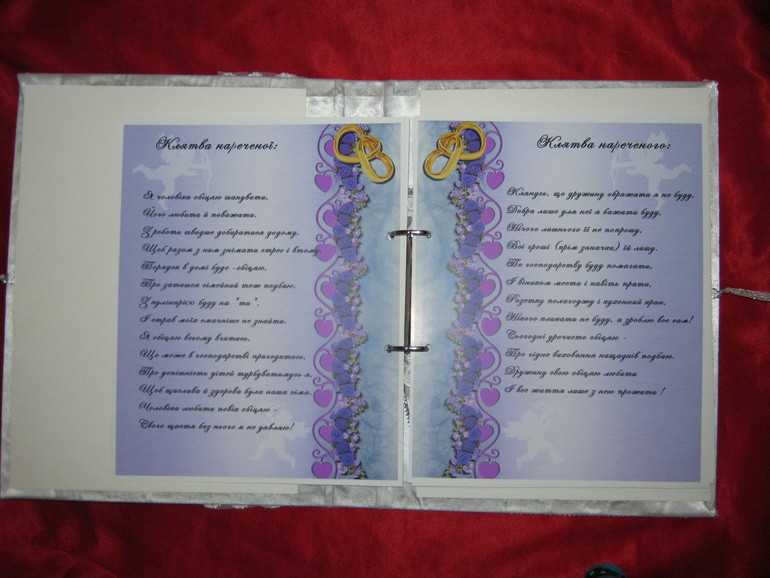 Клятва нареченої:
Я чоловіка обіцяю шанувати,
Його любить й поважати.
З роботи швидше добиратися додому,
Щоб разом з ним знімати стрес і втому.
Порядок в домі буде - обіцяю.
Про затишок сімейний теж подбаю.
З кулінарією буду на "ти",
І страв моїх смачніше не знайти.
Я обіцяю всьому вчитись,
Що може в господарстві пригодитись.
Про успішність дітей турбуватимусь я,
Щоб щаслива й здорова була наша сім'я.
Чоловіка любити повік обіцяю -
Свого щастя без нього я не уявляю!
Клятва нареченого:
Клянусь, що дружину ображати я не буду,
Добра лише для неї я бажати буду,
Нічого лишнього її не попрошу,
Всі гроші (крім заначки) їй лишу.
По господарству буду помагати,
І віником мести і навіть прати.
Розетку полагоджу і кухонний кран,
Нікого кликати не буду, а зроблю все сам!
Сьогодні урочисто обіцяю -
Про гідне виховання нащадків подбаю.
Дружину свою обіцяю любити
І все життя лише з нею прожити !